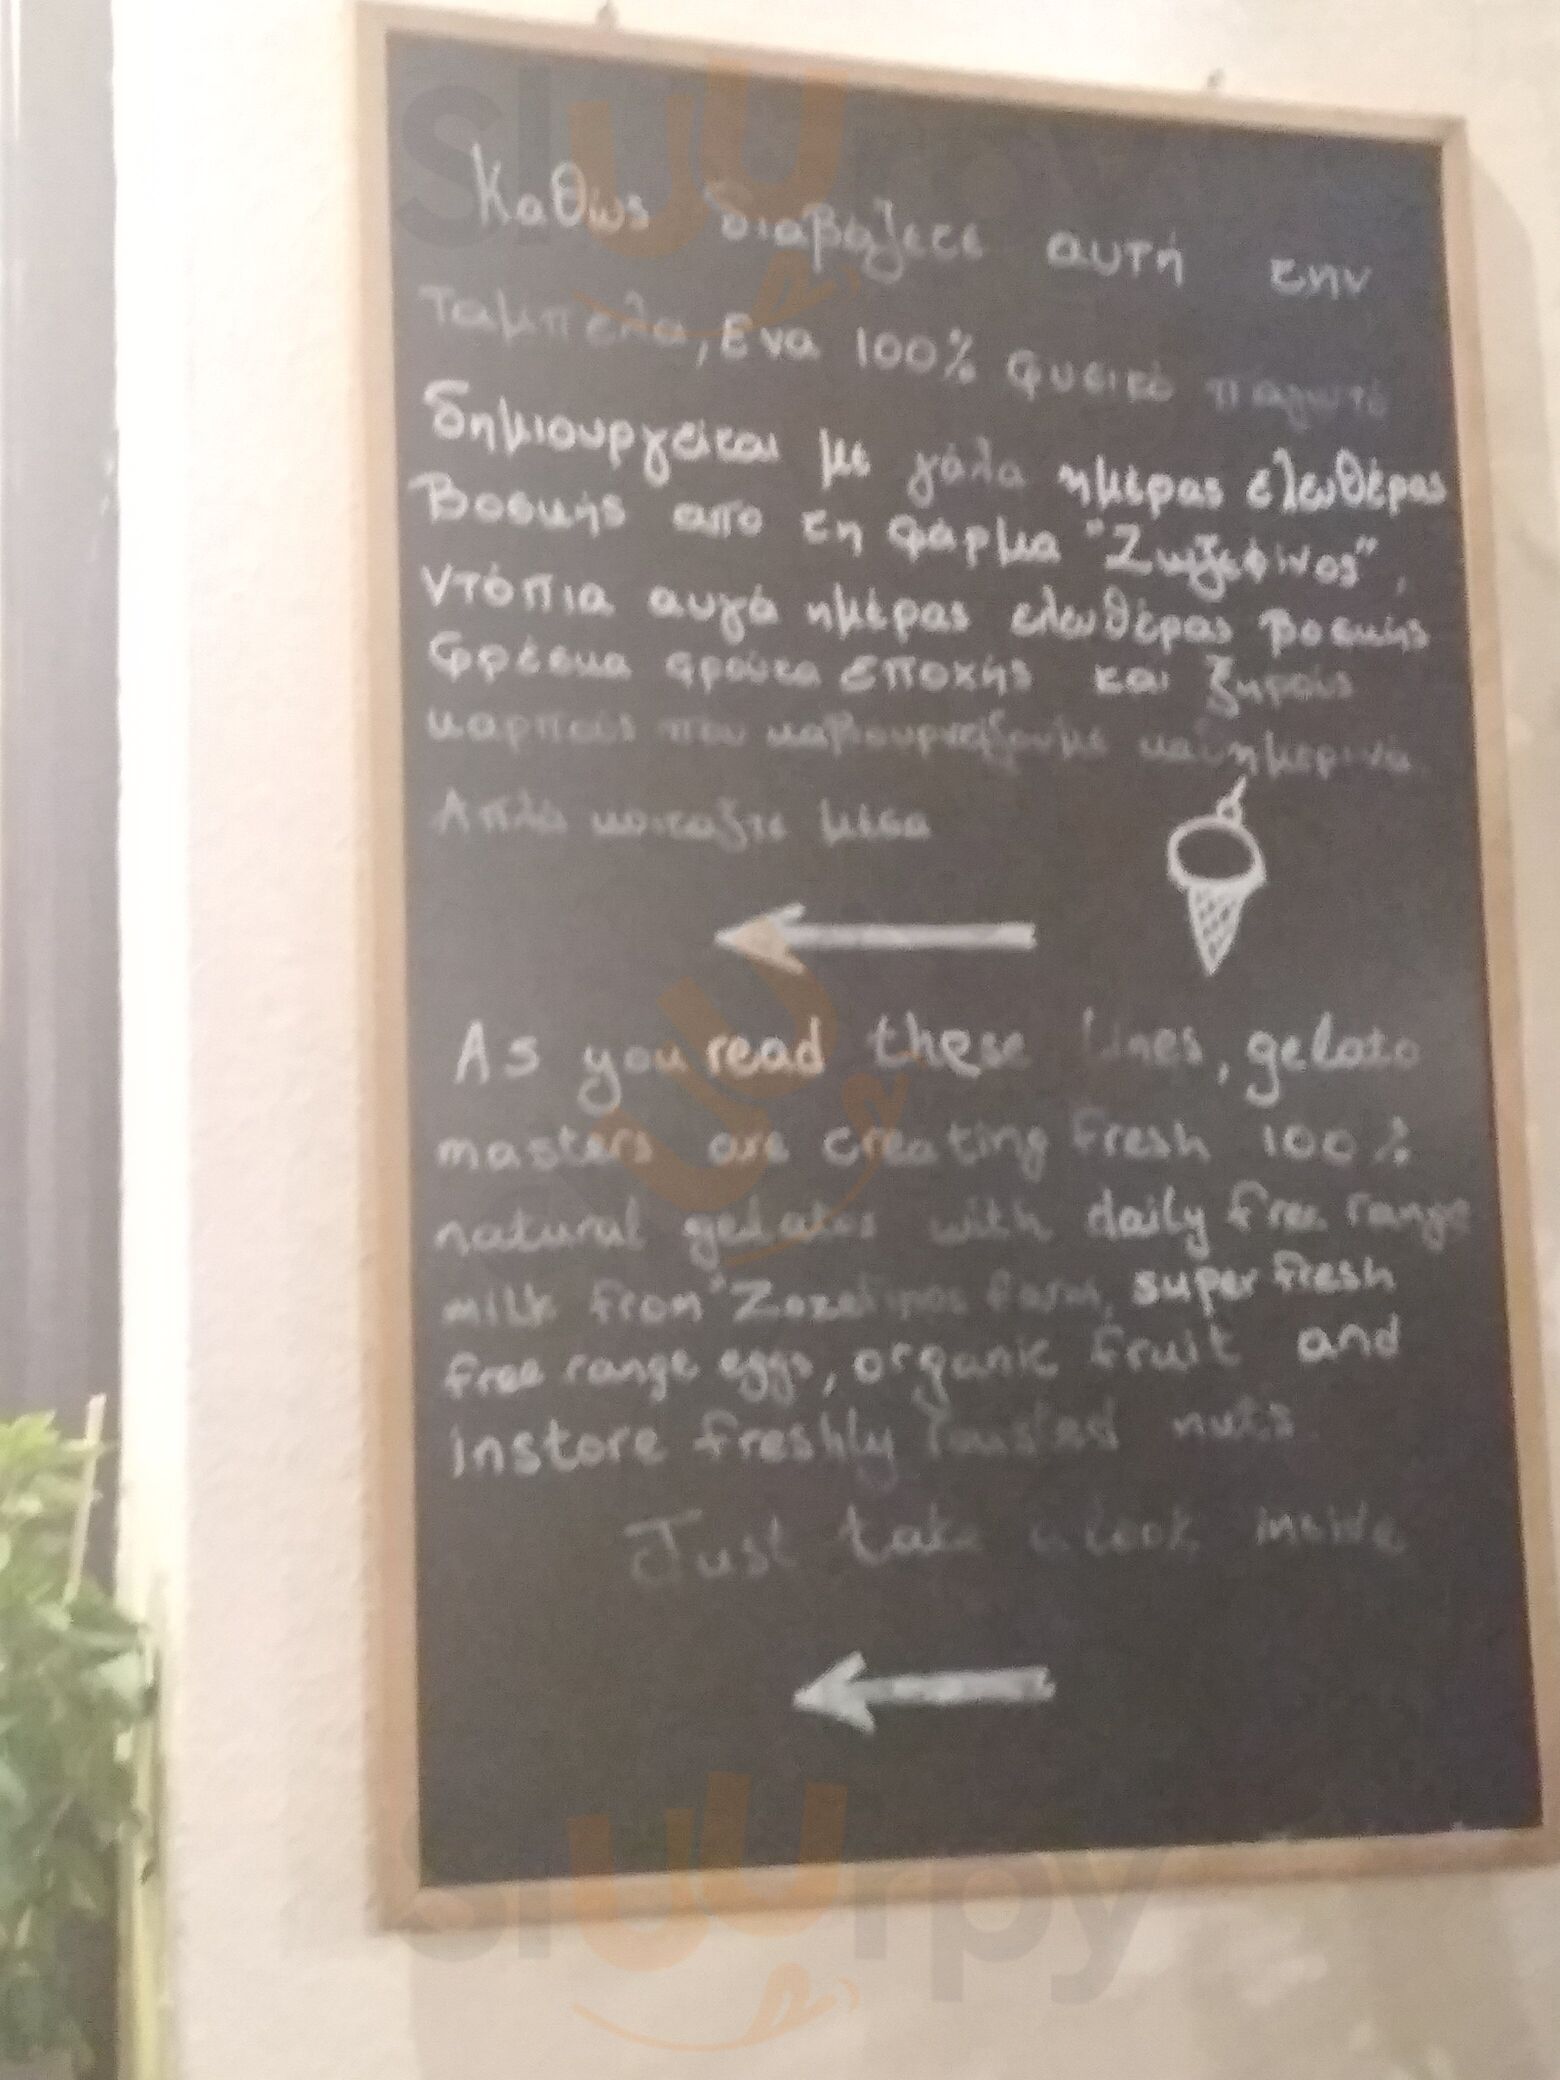 Καθώς διαβάζετε αυτή την
ταμπέλα, Ενα 100% φυσικό παγωτό
δημιουργείται με γάλα ημέρας ελευθέρας
Βοσκής απο τη φάρμα "Ζωζεφίνος",
ντόπια αυγά ημέρας ελευθέρας βοσκής
φρέσκα φρούτα εποχής και ξηρούς
καρπούς που καβουρντίζουμε καθημερινά.
Απλά κοιταξτε μέσα
As you read these lines, gelato
masters are creating fresh 100%
natural gelatos with daily free range
milk from "Zozefinos farm, super fresh
free range eggs, organic fruit and
instore freshly rousted nuts
Just take a look inside
sluurpy
sluurpy